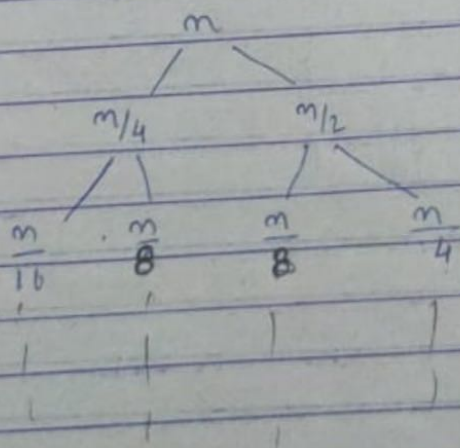 n
n/4 n/2
n/16 n/8 n/8 n/4